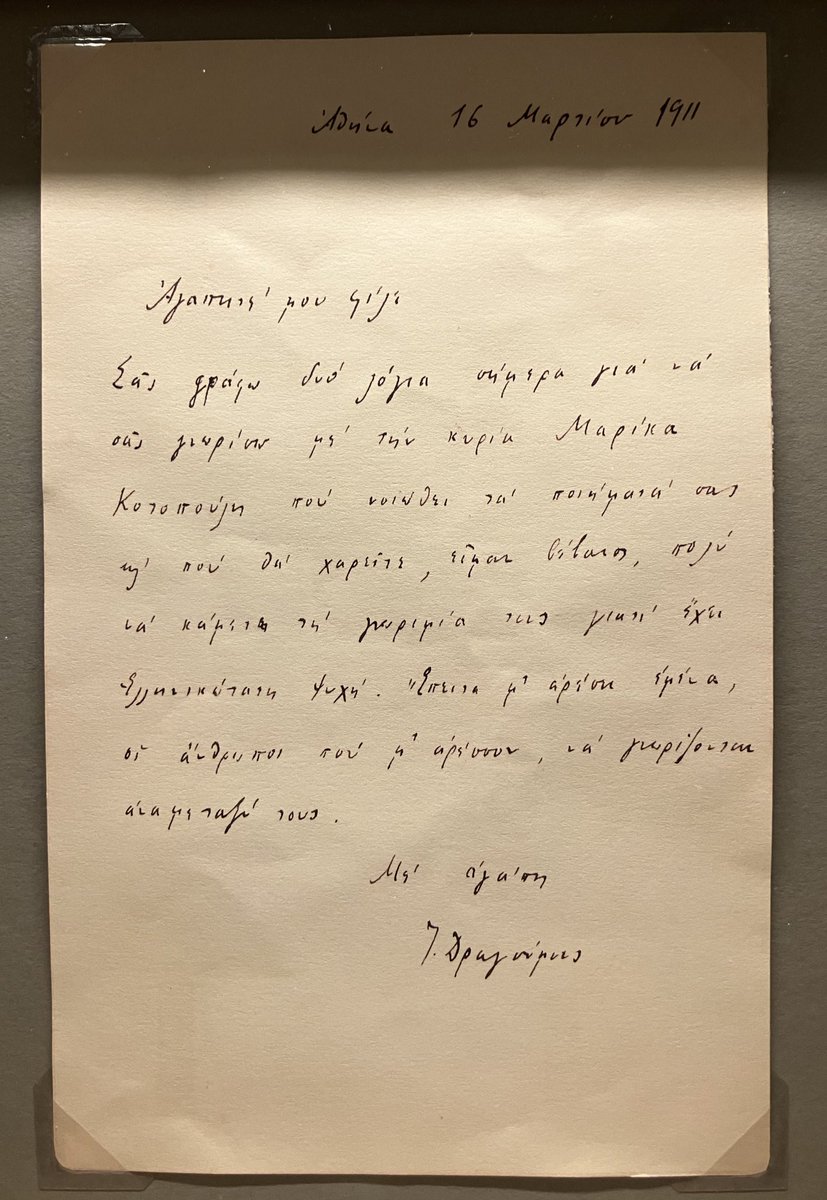 Ἀθήνα 16 Μαρτίου 1911
Ἀγαπητέ μου φίλε
Σᾶς γράφω δυό λόγια σήμερα γιά νά
σᾶς γνωρίσω μέ τήν κυρία Μαρίκα
Κοτοπούλη πού νοιώθει τά ποιήματά σας
κι' πού θά χαρεῖτε, εἶμαι βέβαιος, πολύ
νά κάμετε τή γνωριμία της γιατί ἔχει
ἑλληνικώτατη ψυχή. Ἔπειτα μ' ἀρέσει ἐμένα,
οἱ ἄνθρωποι πού μ' ἀρέσουν, νά γνωρίζονται
ἀναμεταξύ τους.
Μέ ἀγάπη
Ἴ. Δραγούμης